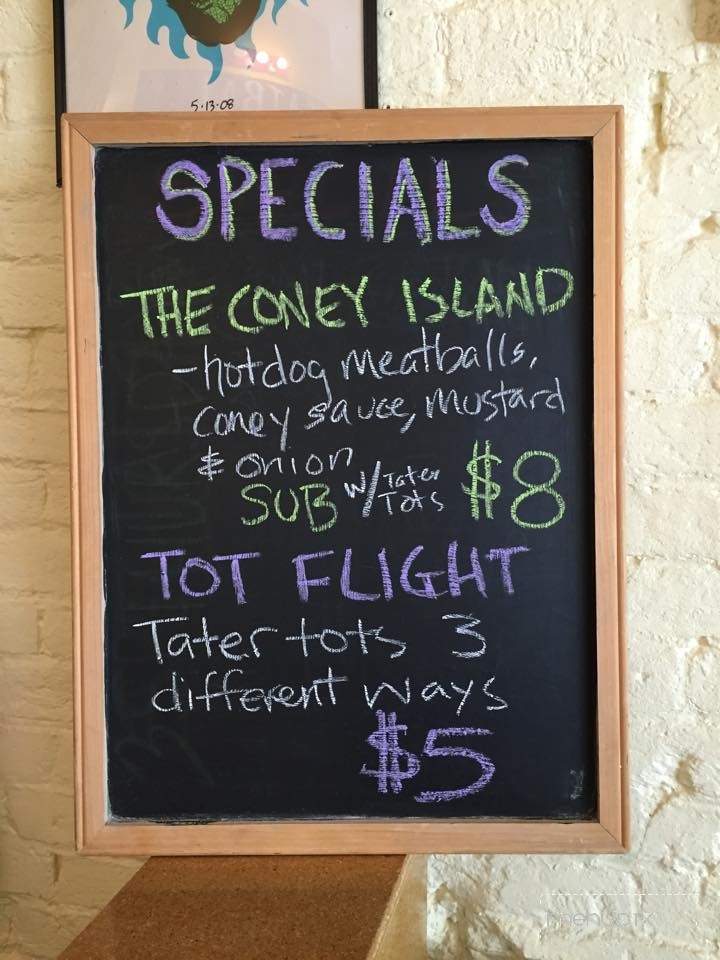 5·13·08
SPECIALS
THE CONEY ISLAND
-hotdog meatballs,
coney sauce, mustard
& onion
SUB w/ Tater Tots $8
TOT FLIGHT
Tater tots 3
different ways
$5